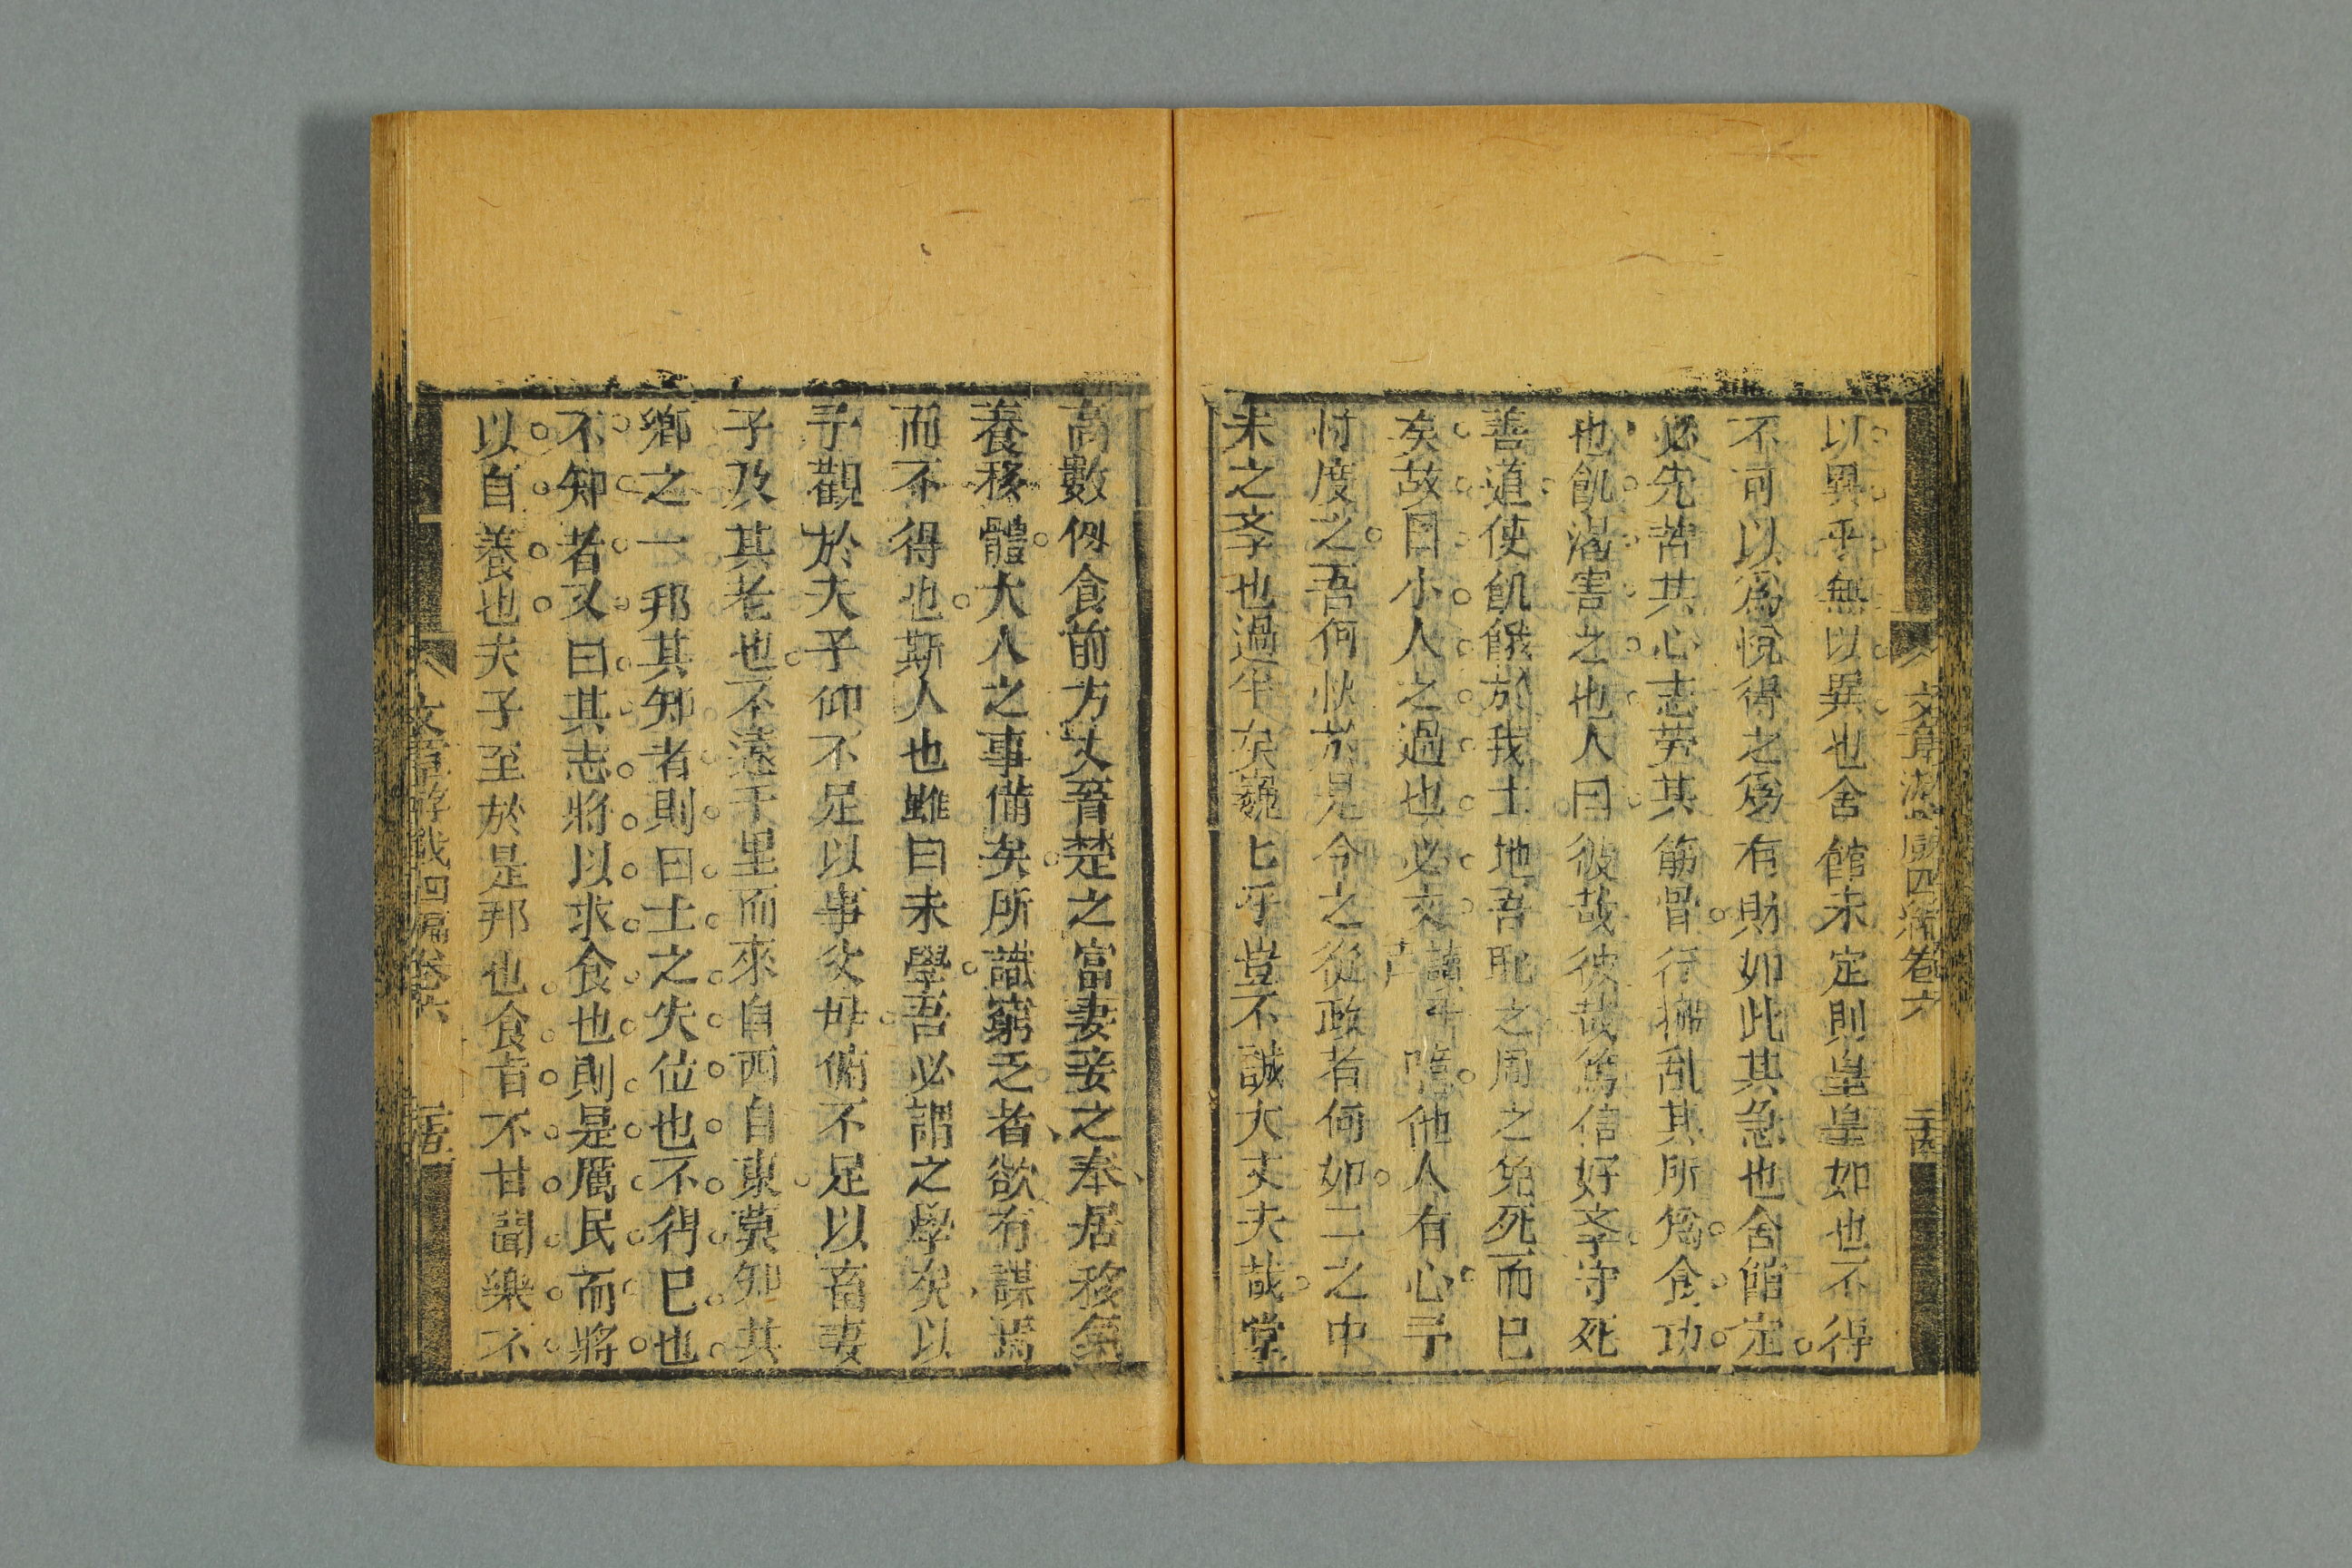 以異乎無以異也舍館未定則皇皇如也不得
不可以為悅得之為有財如此其急也舍館定
必先苦其心志劳其筋骨行拂乱其所為食功
也飢渴害之也人曰彼哉彼哉篤信好斈守死
善道使飢餓於我土地吾恥之周之免死而已
矣故曰小人之過也必文 他人有心予
忖度之吾何快於是今之從政者何如二之中
未之斈也過半矣巍匕乎豈不誠大丈夫哉堂
高數仞食前方丈晉楚之富妻妾之奉居移氣
養移體大人之事備矣所識窮乏者欲有謀焉
而不得也斯人也雖曰未學吾必謂之學矣以
予觀於夫子仰不足以事父母俯不足以畜妻
子及其老也不遠千里而來自西自東莫知其
鄉之一邦其知者則曰士之失位也不得已也
不知者又曰其志將以求食也則是厲民而將
以自養也夫子至於是邦也食旨不甘聞樂不
文章游戲四編卷六